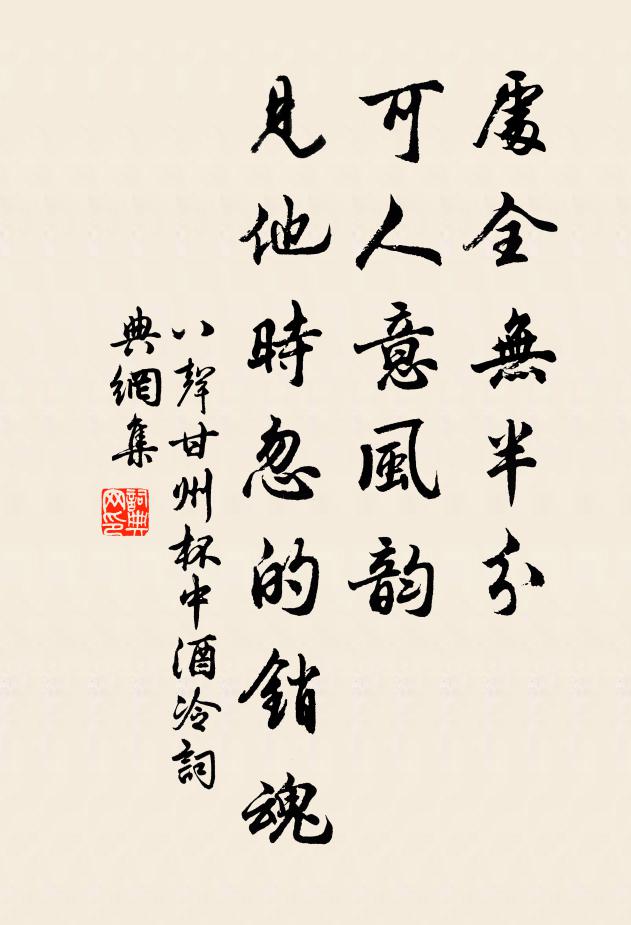 處全無半分
可人意風韵
見他時忽的銷魂
八聲甘州杯中酒冷詞
典網集
詞典
网印